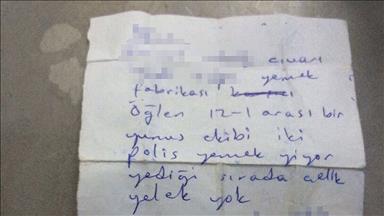 civarı
yemek
fabrikası
öğlen 12-1 arası bir
yunus ekibi iki
polis yemek yiyor
yediği sırada çelik
yelek yok